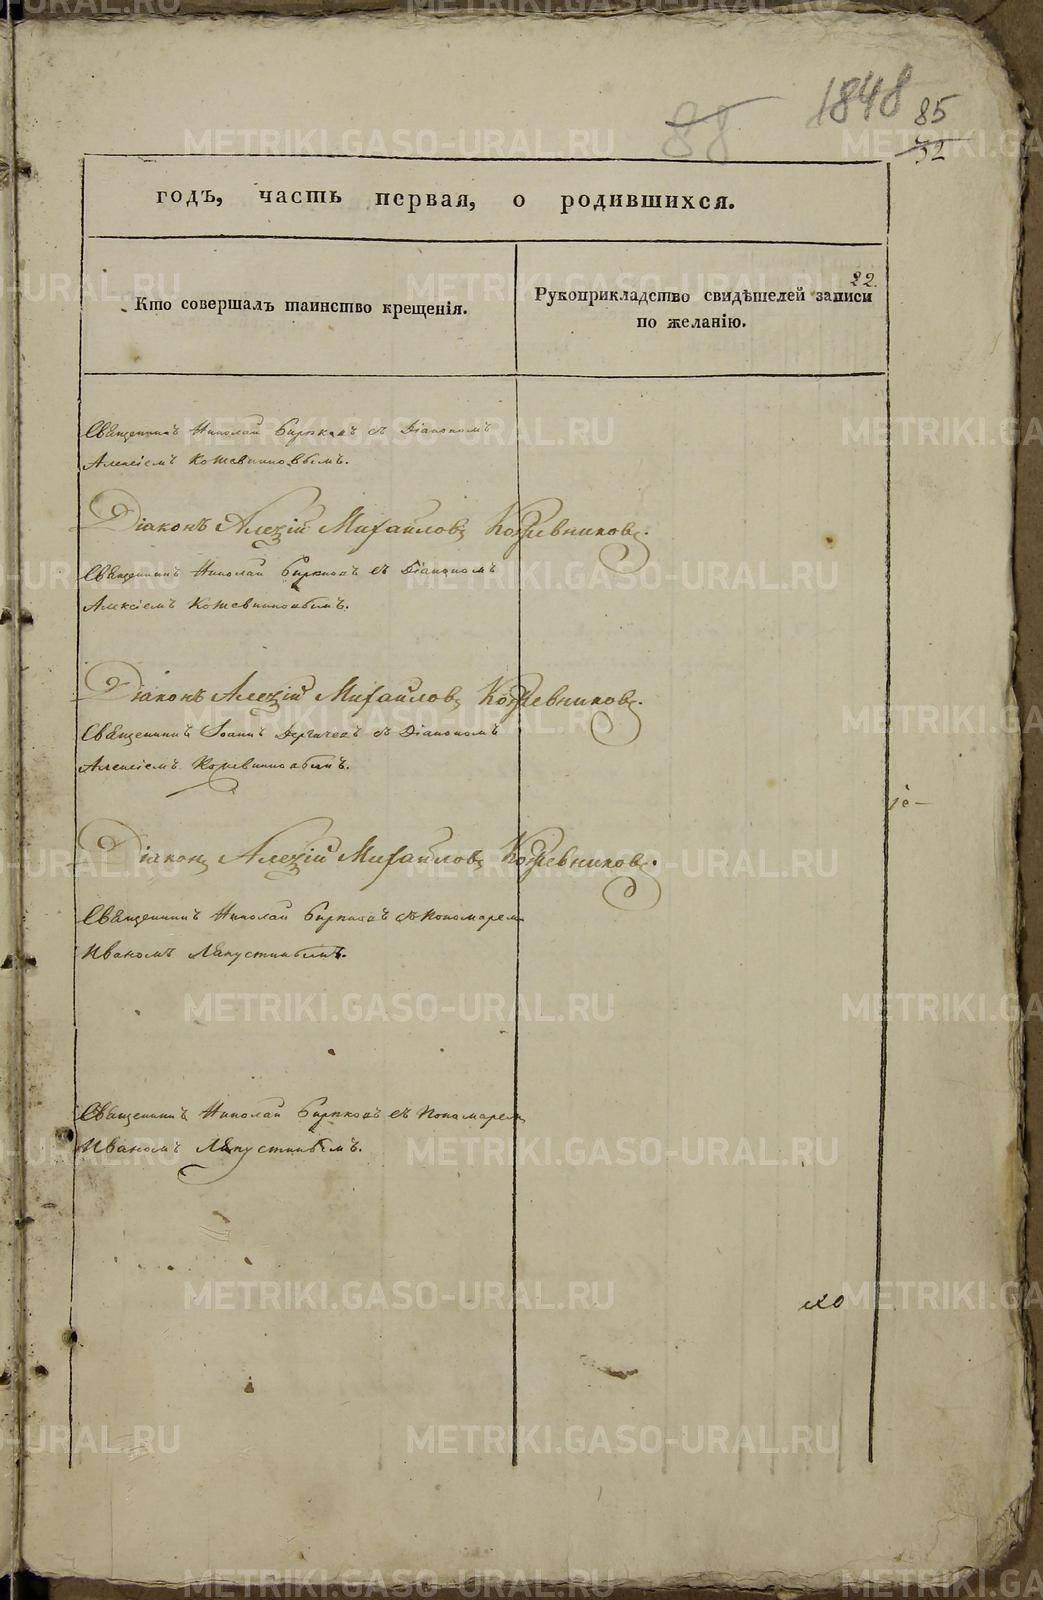 1848
88
85
32
годъ, часть первая, о родившихся.
22.
Кто совершалъ таинство крещенія.
Рукоприкладство свидѣтелей записи
по желанію.
Священникъ Николай Бирюковъ съ Діакономъ
Алексіемъ Кожевниковымъ.
Діаконъ Алезій Михайловъ Кожевниковъ.
Священникъ Николай Бирюковъ съ Діакономъ
Алексіемъ Кожевниковымъ.
Діаконъ Алезій Михайловъ Кожевниковъ.
Священникъ Іоаннъ Дергачевъ съ Діакономъ
Алексіемъ Кожевниковымъ.
Діаконъ Алезій Михайловъ Кожевниковъ.
Священникъ Николай Бирюковъ съ Пономаремъ
Иваномъ Ляпустинымъ.
Священникъ Николай Бирюковъ съ Пономаремъ
Иваномъ Ляпустинымъ.
METRIKI.GASO-URAL.RU